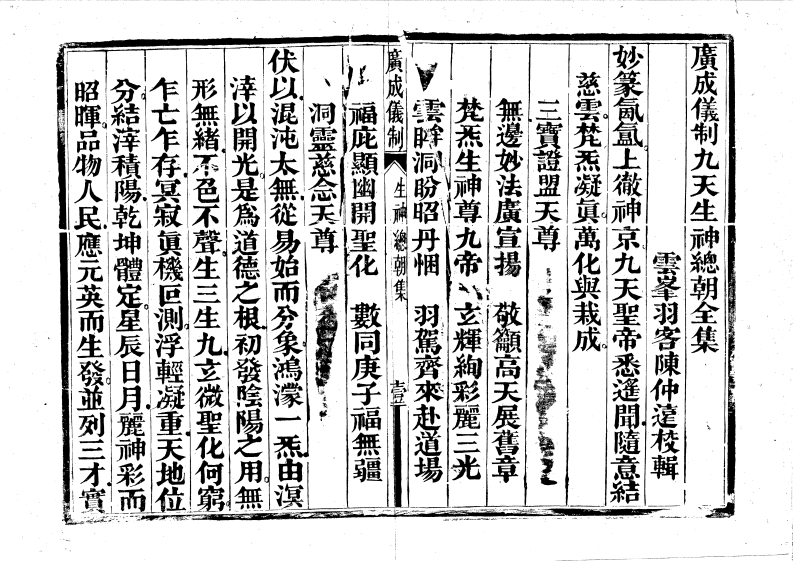 廣成儀制九天生神總朝全集
雲峯羽客陳仲遠校輯
妙篆氤氳上徹神京九天聖帝悉遙聞隨意結
慈雲梵炁凝眞萬化與栽成
三寶證盟天尊
無邊妙法廣宣揚 敬籲高天展舊章
梵炁生神尊九帝 玄輝絢彩麗三光
雲軿洞盼昭丹悃 羽駕齊來赴道場
廣成儀制 生神總朝集 壹
福庇顯幽開聖化 數同庚子福無疆
洞靈慈念天尊
伏以混沌太無從易始而分象鴻濛一炁由溟
滓以開光是爲道德之根初發陰陽之用無
形無緒不色不聲生三生九玄微聖化何窮
乍亡乍存冥寂眞機叵測浮輕凝重天地位
分結滓積陽乾坤體定星辰日月麗神彩而
昭暉品物人民應元英而生發並列三才實